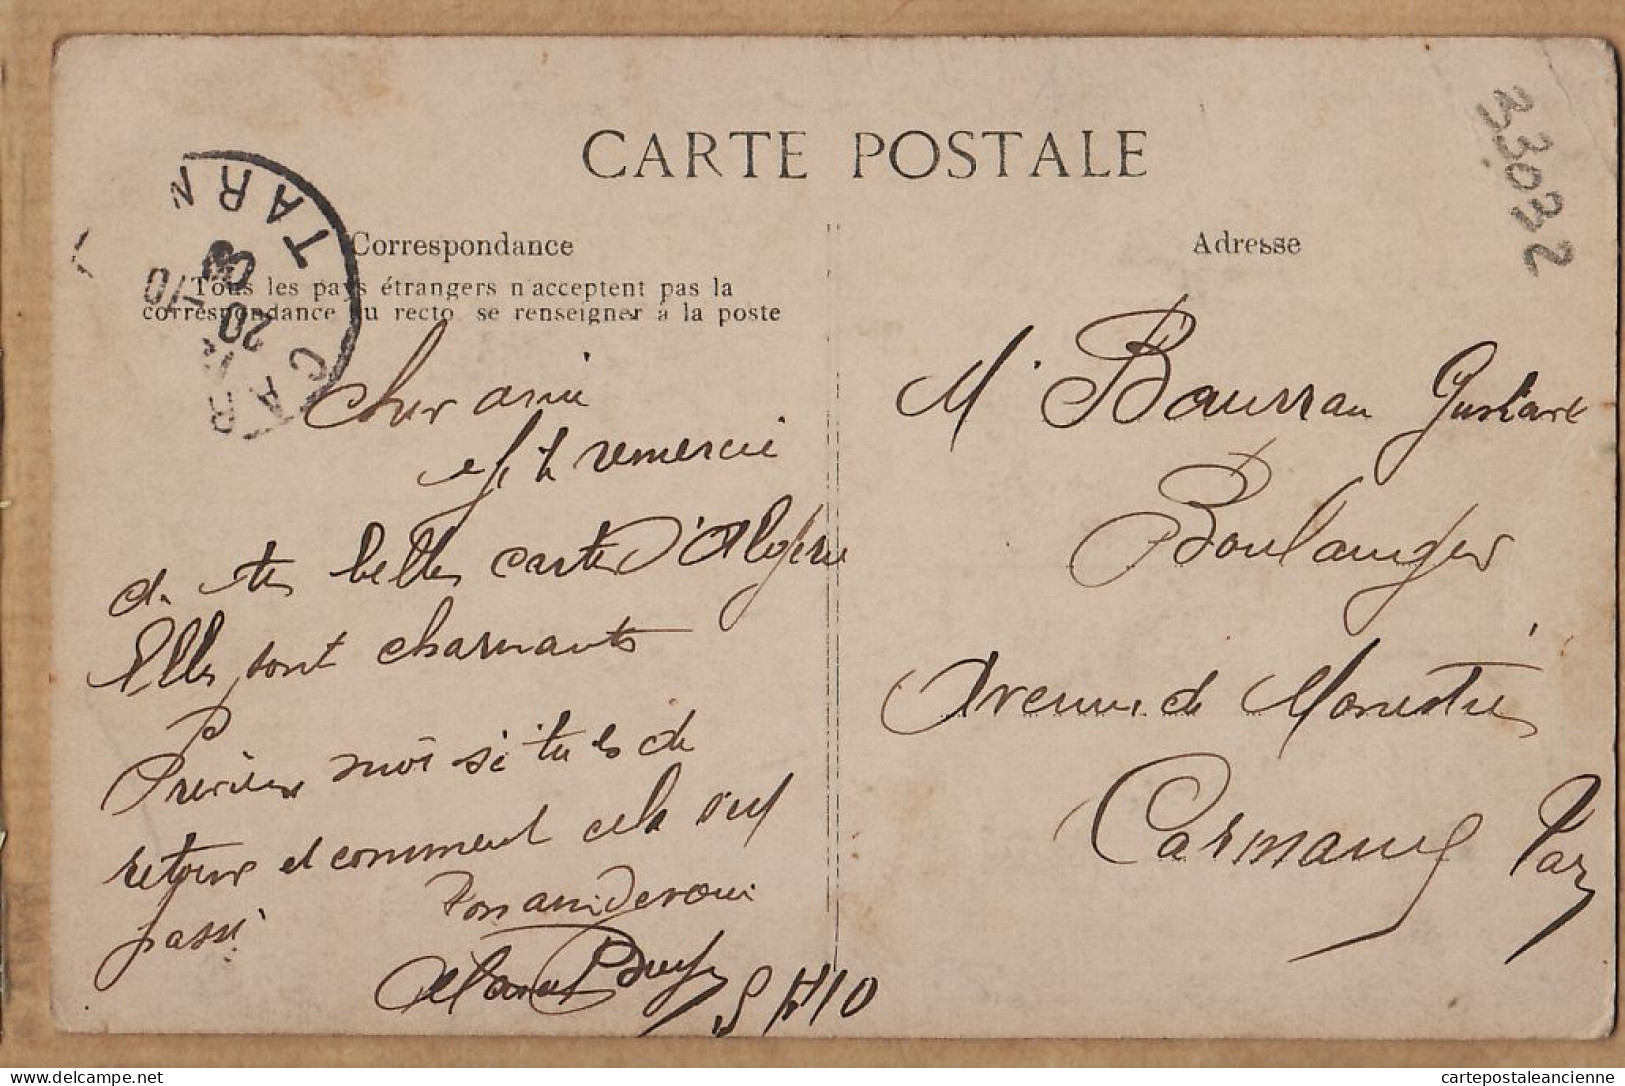 CARTE POSTALE
33032
Correspondance
Tous les pays étrangers n'acceptent pas la
correspondance au recto, se renseigner à la poste
Adresse
TARN
20
CAR
Cher ami
Je te remercie
de tes belles cartes d'Algerie
Elles sont charmants
Previens moi si tu es de
retour et comment cela s'est
passé
Ton ami devoué
M. Bourran Gustave
Boulanger
Avenue de Monestiés
Carmaux Tarn
cartepostaleancienne
delcampe.net
cartepostaleancienne.com